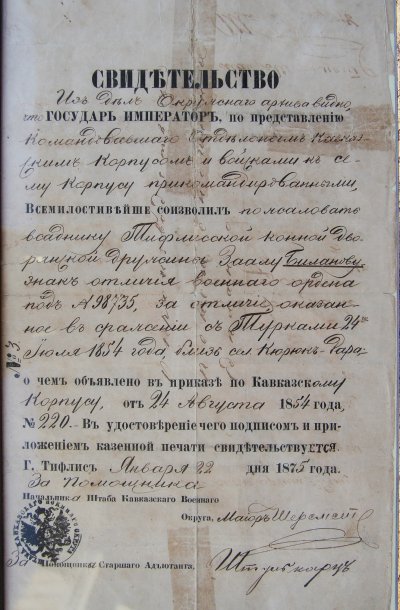 СВИДѢТЕЛЬСТВО
Изъ дѣлъ Окружнаго архива видно,
что ГОСУДАРЬ ИМПЕРАТОРЪ, по представленію
Командовавшаго Отдѣльнымъ Кавказ-
скимъ Корпусомъ и войсками къ се-
му Корпусу прикомандированными,
Всемилостивѣйше соизволилъ пожаловать
всаднику Тифлисской конной Дво-
рянской дружины Заалу Биланову,
знакъ отличія военнаго ордена
подъ № 98735, за отличіе оказан-
ное въ сраженіи съ Турками 24го
Іюля 1854 года, близъ сел. Кюрюкъ-Дара
о чемъ объявлено въ приказѣ по Кавказскому
Корпусу, отъ 24 Августа 1854 года,
№ 220.— Въ удостовѣреніе чего подписомъ и при-
ложеніемъ казенной печати свидѣтельствуется.
Г. Тифлисъ, Января 22 дня 1875 года.
За Помощника
Начальника Штаба Кавказскаго Военнаго
Округа, Маіоръ Шереметъ
За Помощника Старшаго Адъютанта,
№ 3.